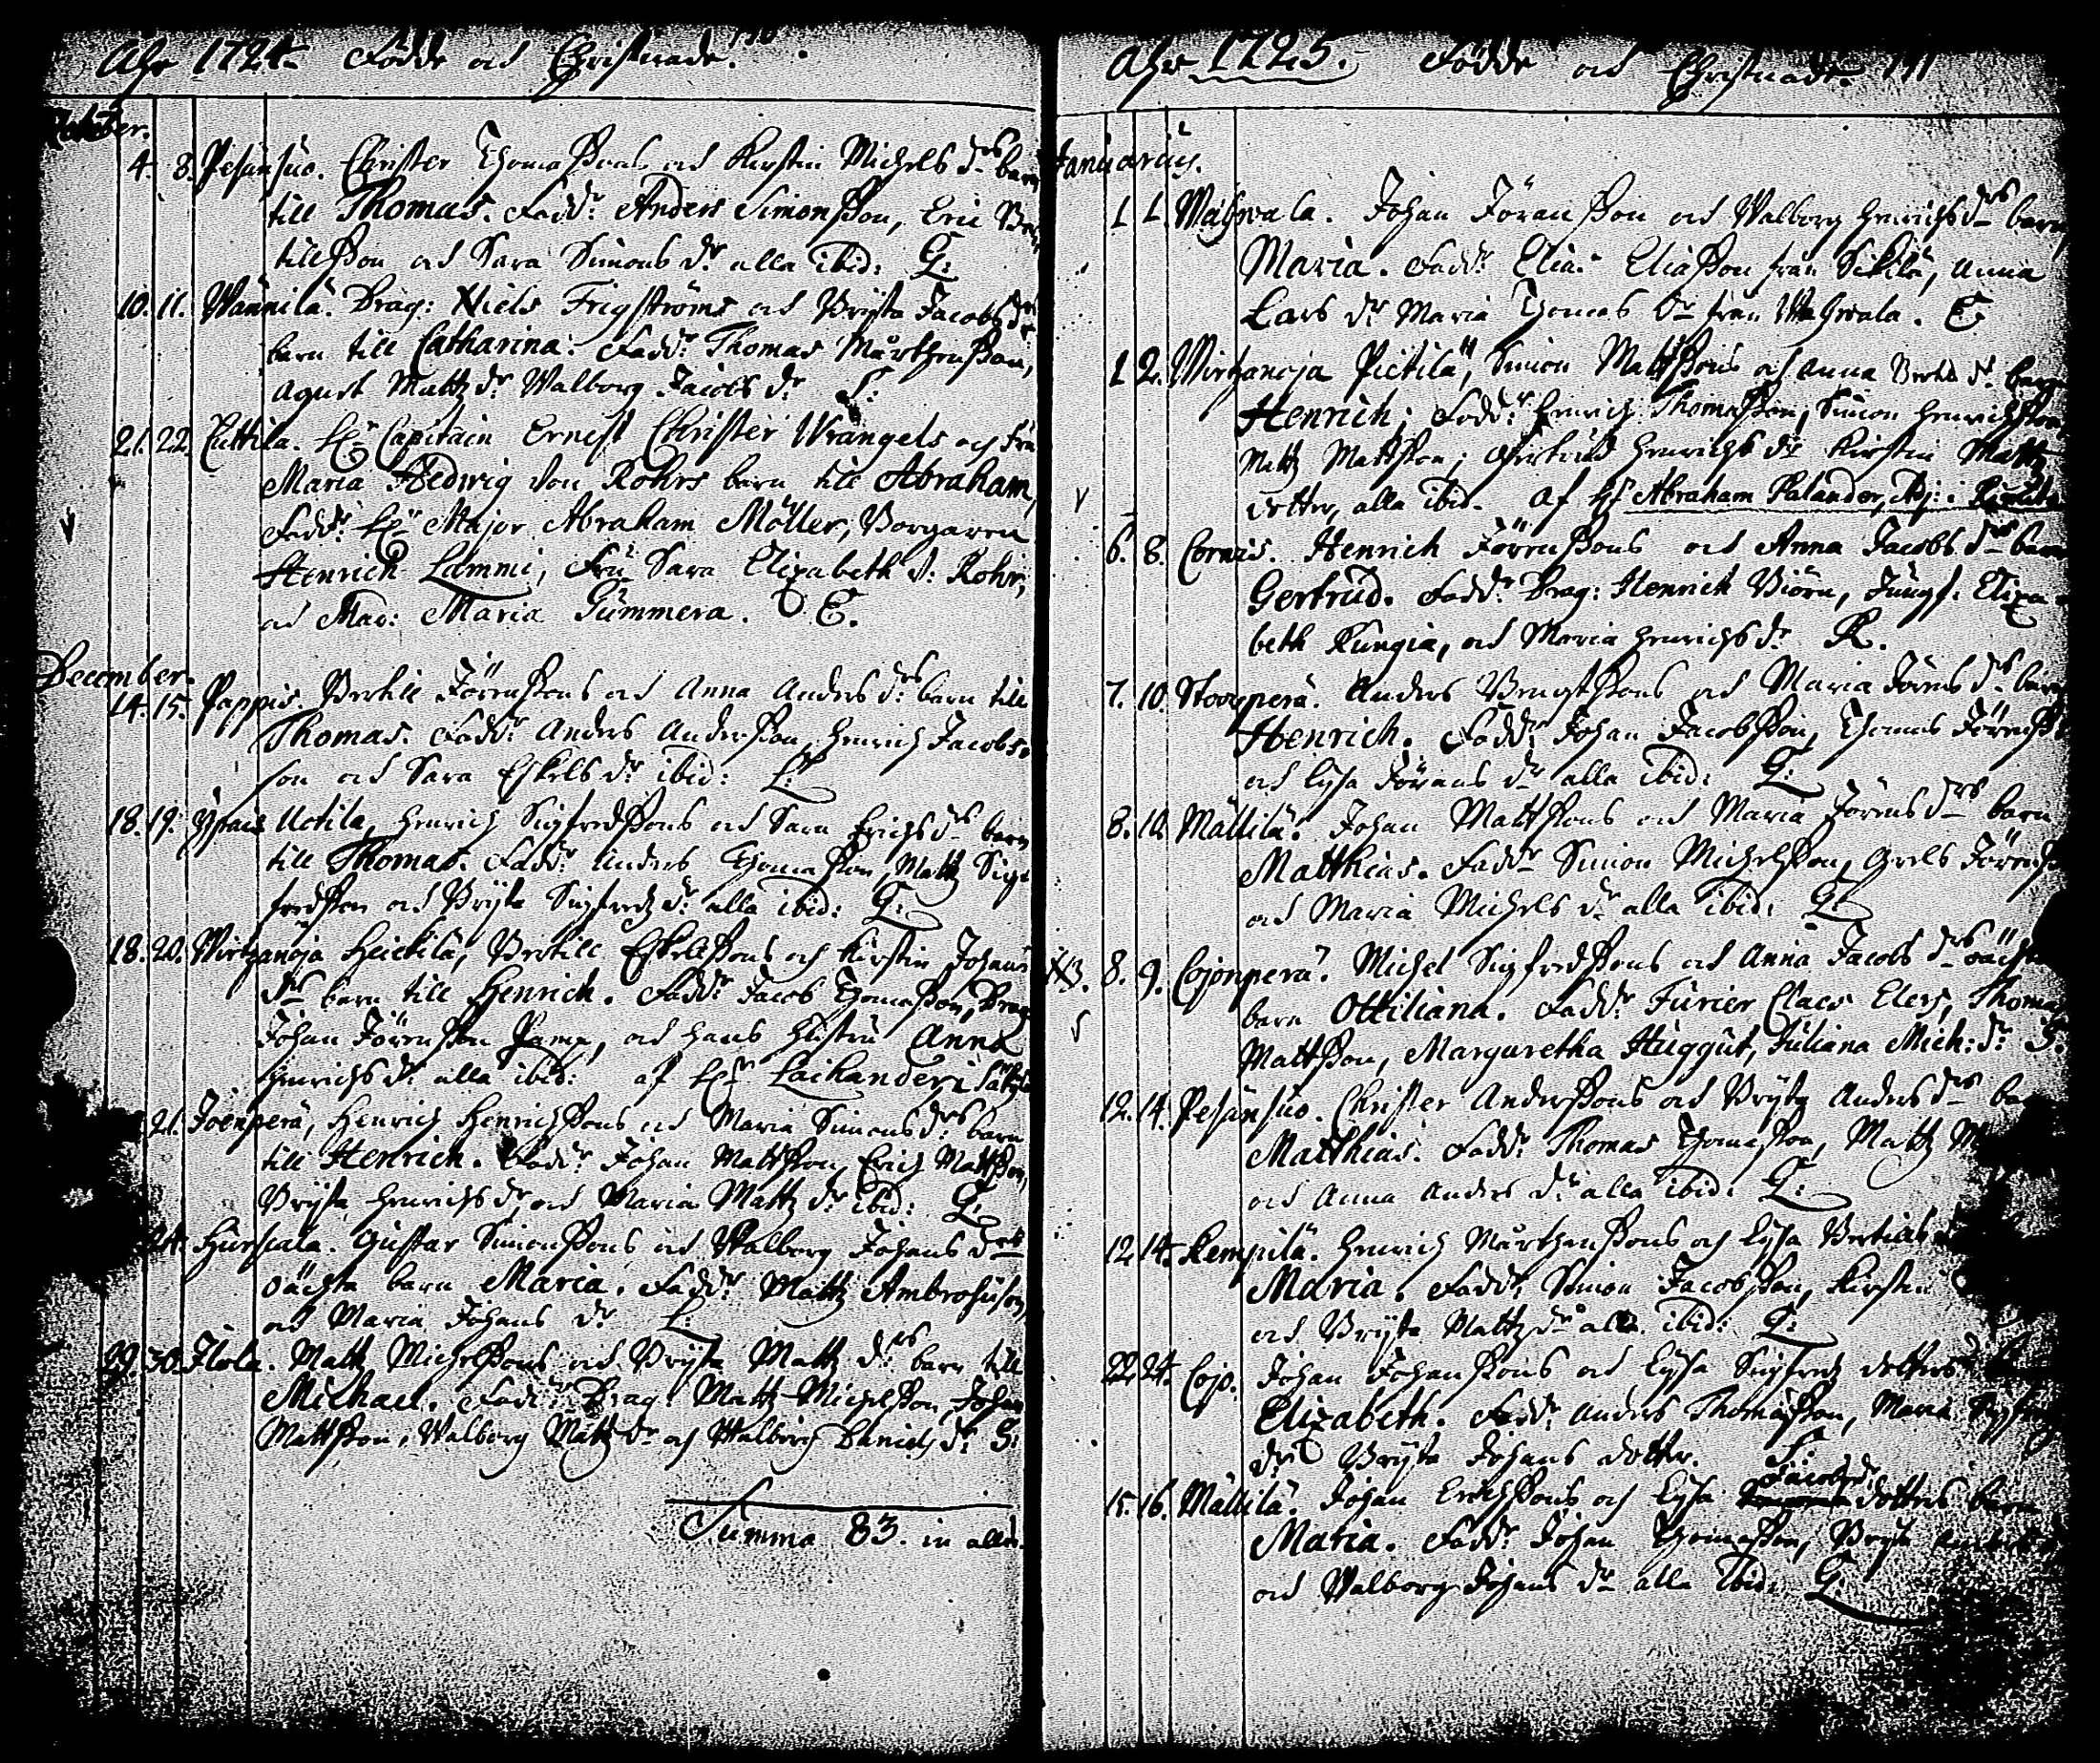 Åhr 1724. Födde och Christnade. 110.
October.
4. 8. Pesänsuo. Christer Thomæssons och Kirstin Michels drs barn
till Thomas. Fadd: Anders Simonsson, Eric Ber-
tillsson och Sara Simons dr alla ibid: G:
10. 11. Wännilä. Drag: Niels Frigströms och Brijta Jacobs drs
barn till Catharina. Fadd: Thomas Mårthensson,
Agnet Mattz dr Walborg Jacobs dr S:
21. 22. Cuttila. Hr Capitain Ernest Christer Wrangels och Fru
Maria Hedwig von Rohrs barn till Abraham,
Fadd: Hr Major Abraham Möller, Borgaren
Henrich Lammi, Fru Sara Elizabeth v: Rohr,
och Mad: Maria Gummera. E.
December.
14. 15. Pappis. Bertill Jörensons och Anna Anders drs barn till
Thomas. Fadd: Anders Andersson, Henrich Jacobs-
son och Sara Eskels dr ibid: L:
18. 19. Uotila, Henrich Sigfredssons och Sara Erichs drs barn
till Thomas. Fadd: Anders Thomæsson, Mattz Sig-
fredsson och Brijta Sigfredz dr alla ibid: G:
18. 20. Wirtzanoja Heickilä, Bertill Eskelssons och Kirstin Johans
drs barn till Henrich. Fadd: Jacob Thomæsson, Drag:
Johan Jörensson Pamp, och hans hustru Anna
Henrichs dr alla ibid: af Hr Laihander i
21. Joenperä, Henrich Henrichssons och Maria Simons drs barn
till Henrich. Fadd: Johan Mattsson, Erich Mattsson,
Brijta Henrichs dr och Maria Mattz dr ibid: G:
24. Hursiala. Gustav Simonssons och Walborg Johans drs
oächta barn Maria. Fadd: Mattz Ambrosiuson,
och Maria Johans dr L:
29. 30. Ilola. Mattz Michelssons och Brijta Mattz drs barn till
Michael. Fadd: Drag: Mattz Michelsson, Johan
Mattsson, Walborg Mattz dr och Walborg Daniels dr S:
Summa 83. in alles.
Åhr 1725. Födde och Christnade. 111
Januarius.
1. 1. Mahwala. Johan Jöransson och Walborg Henrichs drs barn
Maria. Fadd: Elias Eliasson från Sikilä, Anna
Lars dr Maria Thomas dr från Mahwala. E
1. 2. Wirtzanoja Pietilä, Simon Mattssons och Anna Bertils drs barn
Henrich; Fadd: Henrich Thomæsson, Simon Henrichsson,
Mattz Mattsson; Gertrud Henrichs dr Kirstin Mattz
dotter, alla ibid. af Hr Abraham Palander, Adj: i
6. 8. Cornais. Henrich Jörenssons och Anna Jacobs drs barn
Gertrud. Fadd: Drag: Henrich Biörn, Jungf. Eliza-
beth Kungia, och Maria Henrichs dr R.
7. 10. Storrperä. Anders Bengtssons och Maria Jörens drs barn
Henrich. Fadd: Johan Jacobsson, Thomas Jörensson
och Lijsa Jörans dr alla ibid: G:
8. 10. Mällilä. Johan Mattssons och Maria Jörens drs barn
Matthias. Fadd: Simon Michelsson, Grels Jörensson
och Maria Michels dr alla ibid: G:
NB. 8. 9. Cojonperä. Michel Sigfredssons och Anna Jacobs drs oächta
barn Ottiliana. Fadd: Furier Claes Elers, Thomas
Mattsson, Margaretha Huggut, Juliana Mich: dr S.
12. 14. Pesänsuo. Christer Anderssons och Brijta Anders drs barn
Matthias. Fadd: Thomas Thomæsson, Mattz
och Anna Anders dr alla ibid: G:
12. 14. Kempilä. Henrich Mårthenssons och Lijsa Bertils
Maria. Fadd: Simon Jacobsson, Kirstin
och Brijta Mattz dr alla ibid: G:
22. 24. Cojo. Johan Johanssons och Lijsa Sigfredz dotters barn
Elizabeth. Fadd: Anders Thomæsson, Maria Sigfredz
dr Brijta Johans dotter. S:
15. 16. Mällilä. Johan Erichssons och Lijsa Jacobs dotters barn
Maria. Fadd: Johan Thomæsson, Brijta
och Walborg Johans dr alla ibid: G: